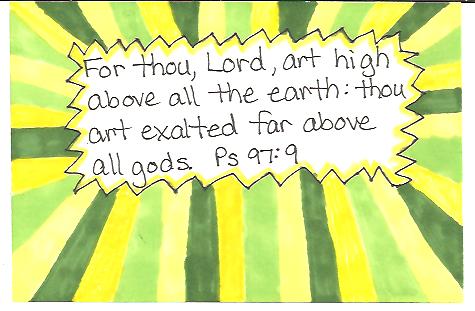 For thou, Lord, art high
above all the earth: thou
art exalted far above
all gods. Ps 97:9